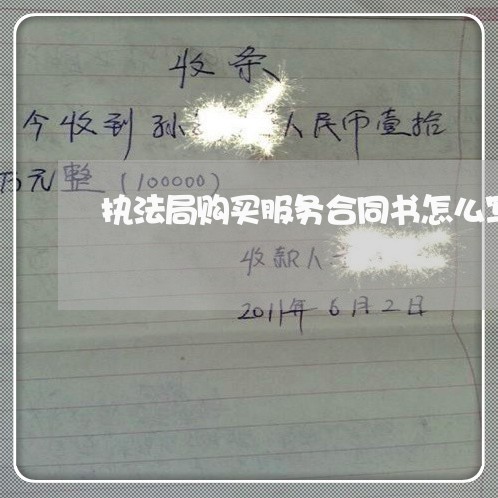 收条
今收到孙 人民币壹拾
万元整(100000)
执法局购买服务合同书怎么
收款人
2011年6月2日